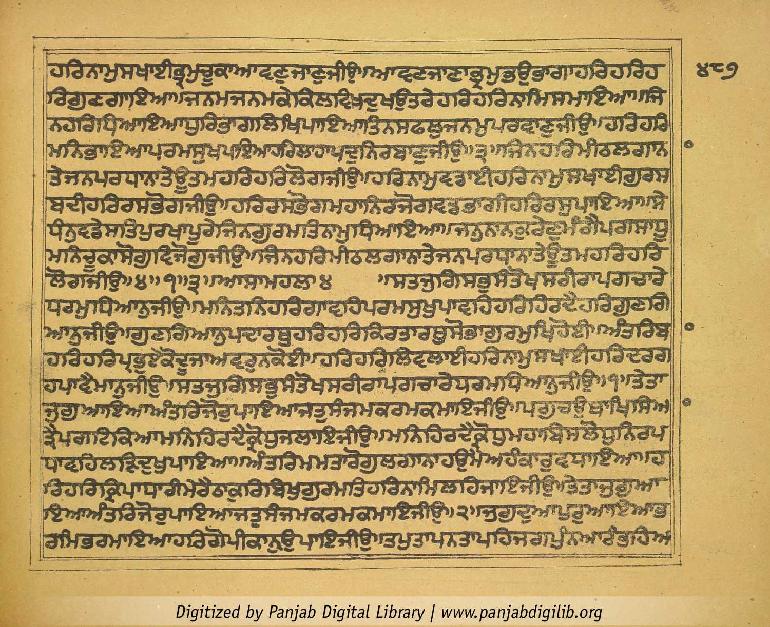 ਹਰਿਨਾਮੁਸਖਾਈਭ੍ਰਮੁਚੂਕਾਆਵਣੁਜਾਣੁਜੀਉ॥ਆਵਣਜਾਣਾਭ੍ਰਮੁਭਉਭਾਗਾਹਰਿਹਰਿਹ
੪੮੭
ਰਿਗੁਣਗਾਇਆ॥ਜਨਮਜਨਮਕੇਕਿਲਵਿਖਦੁਖਉਤਰੇਹਰਿਹਰਿਨਾਮਿਸਮਾਇਆ॥ਜਿ
ਨਹਰਿਧਿਆਇਆਧੁਰਿਭਾਗਲਿਖਿਪਾਇਆਤਿਨਸਫਲੁਜਨਮੁਪਰਵਾਣੁਜੀਉ॥ਹਰਿਹਰਿ
ਮਨਿਭਾਇਆਪਰਮਸੁਖਪਾਇਆਹਰਿਲਾਹਾਪਦੁਨਿਰਬਾਣੁਜੀਉ॥੩॥ਜਿਨਹਰਿਮੀਠਲਗਾਨ
ਤੇਜਨਪਰਧਾਨਾਤੇਊਤਮਹਰਿਹਰਿਲੋਗਜੀਉ॥ਹਰਿਨਾਮੁਵਡਾਈਹਰਿਨਾਮੁਸਖਾਈਗੁਰਸ
ਬਦੀਹਰਿਰਸਭੋਗਜੀਉ॥ਹਰਿਰਸਭੋਗਮਹਾਨਿਰਜੋਗਵਡਭਾਗੀਹਰਿਰਸੁਪਾਇਆ॥ਸੇ
ਧੰਨੁਵਡੇਸਤਿਪੁਰਖਾਪੂਰੇਜਿਨਗੁਰਮਤਿਨਾਮੁਧਿਆਇਆ॥ਜਨੁਨਾਨਕੁਰੇਣੁਮੰਗੈਪਗਸਾਧੂ
ਮਨਿਚੂਕਾਸੋਗੁਵਿਜੋਗੁਜੀਉ॥ਜਿਨਹਰਿਮੀਠਲਗਾਨਾਤੇਜਨਪਰਧਾਨਾਤੇਊਤਮਹਰਿਹਰਿ
ਲੋਗਜੀਉ॥੪॥੧॥੩॥ਆਸਾਮਹਲਾ੪ ॥ਸਤਜੁਗਿਸਭੁਸੰਤੋਖਸਰੀਰਾਪਗਚਾਰੇ
ਧਰਮੁਧਿਆਨੁਜੀਉ॥ਮਨਿਤਨਿਹਰਿਗਾਵਹਿਪਰਮਸੁਖੁਪਾਵਹਿਹਰਿਹਿਰਦੈਹਰਿਗੁਣਗਿ
ਆਨੁਜੀਉ॥ਗੁਣਗਿਆਨੁਪਦਾਰਥੁਹਰਿਹਰਿਕਿਰਤਾਰਥੁਸੋਭਾਗੁਰਮੁਖਿਹੋਈ॥ਅੰਤਰਿਬ
ਹਰਿਹਰਿਪ੍ਰਭੁਏਕੋਦੂਜਾਅਵਰੁਨਕੋਈ॥ਹਰਿਹਰਿਲਿਵਲਾਈਹਰਿਨਾਮੁਸਖਾਈਹਰਿਦਰਗ
ਹਪਾਵੈਮਾਨੁਜੀਉ॥ਸਤਜੁਗਿਸਭੁਸੰਤੋਖਸਰੀਰਾਪਗਚਾਰੇਧਰਮੁਧਿਆਨੁਜੀਉ॥੧॥ਤੇਤਾ
ਜੁਗੁਆਇਆਅੰਤਰਿਜੋਰੁਪਾਇਆਜਤੁਸੰਜਮਕਰਮਕਮਾਇਜੀਉ॥ਪਗੁਚਉਥਾਖਿਸਿਆ
ਤ੍ਰੈਪਗਟਿਕਿਆਮਨਿਹਿਰਦੈਕ੍ਰੋਧੁਜਲਾਇਜੀਉ॥ਮਨਿਹਿਰਦੈਕ੍ਰੋਧੁਮਹਾਬਿਸਲੋਧੁਨਿਰਪ
ਧਾਵਹਿਲੜਿਦੁਖੁਪਾਇਆ॥ਅੰਤਰਿਮਮਤਾਰੋਗੁਲਗਾਨਾਹਉਮੈਅਹੰਕਾਰੁਵਧਾਇਆ॥ਹ
ਰਿਹਰਿਕ੍ਰਿਪਾਧਾਰੀਮੇਰੈਠਾਕੁਰਿਬਿਖੁਗੁਰਮਤਿਹਰਿਨਾਮਿਲਹਿਜਾਇਜੀਉ॥ਤੇਤਾਜੁਗੁਆ
ਇਆਅੰਤਰਿਜੋਰੁਪਾਇਆਜਤੁਸੰਜਮਕਰਮਕਮਾਇਜੀਉ॥੨॥ਜੁਗੁਦੁਆਪੁਰੁਆਇਆਭ
ਰਮਿਭਰਮਾਇਆਹਰਿਗੋਪੀਕਾਨੁਉਪਾਇਜੀਉ॥ਤਪੁਤਾਪਨਤਾਪਹਿਜਗਪੁੰਨਆਰੰਭਹਿਅ
Digitized by Panjab Digital Library | www.panjabdigilib.org